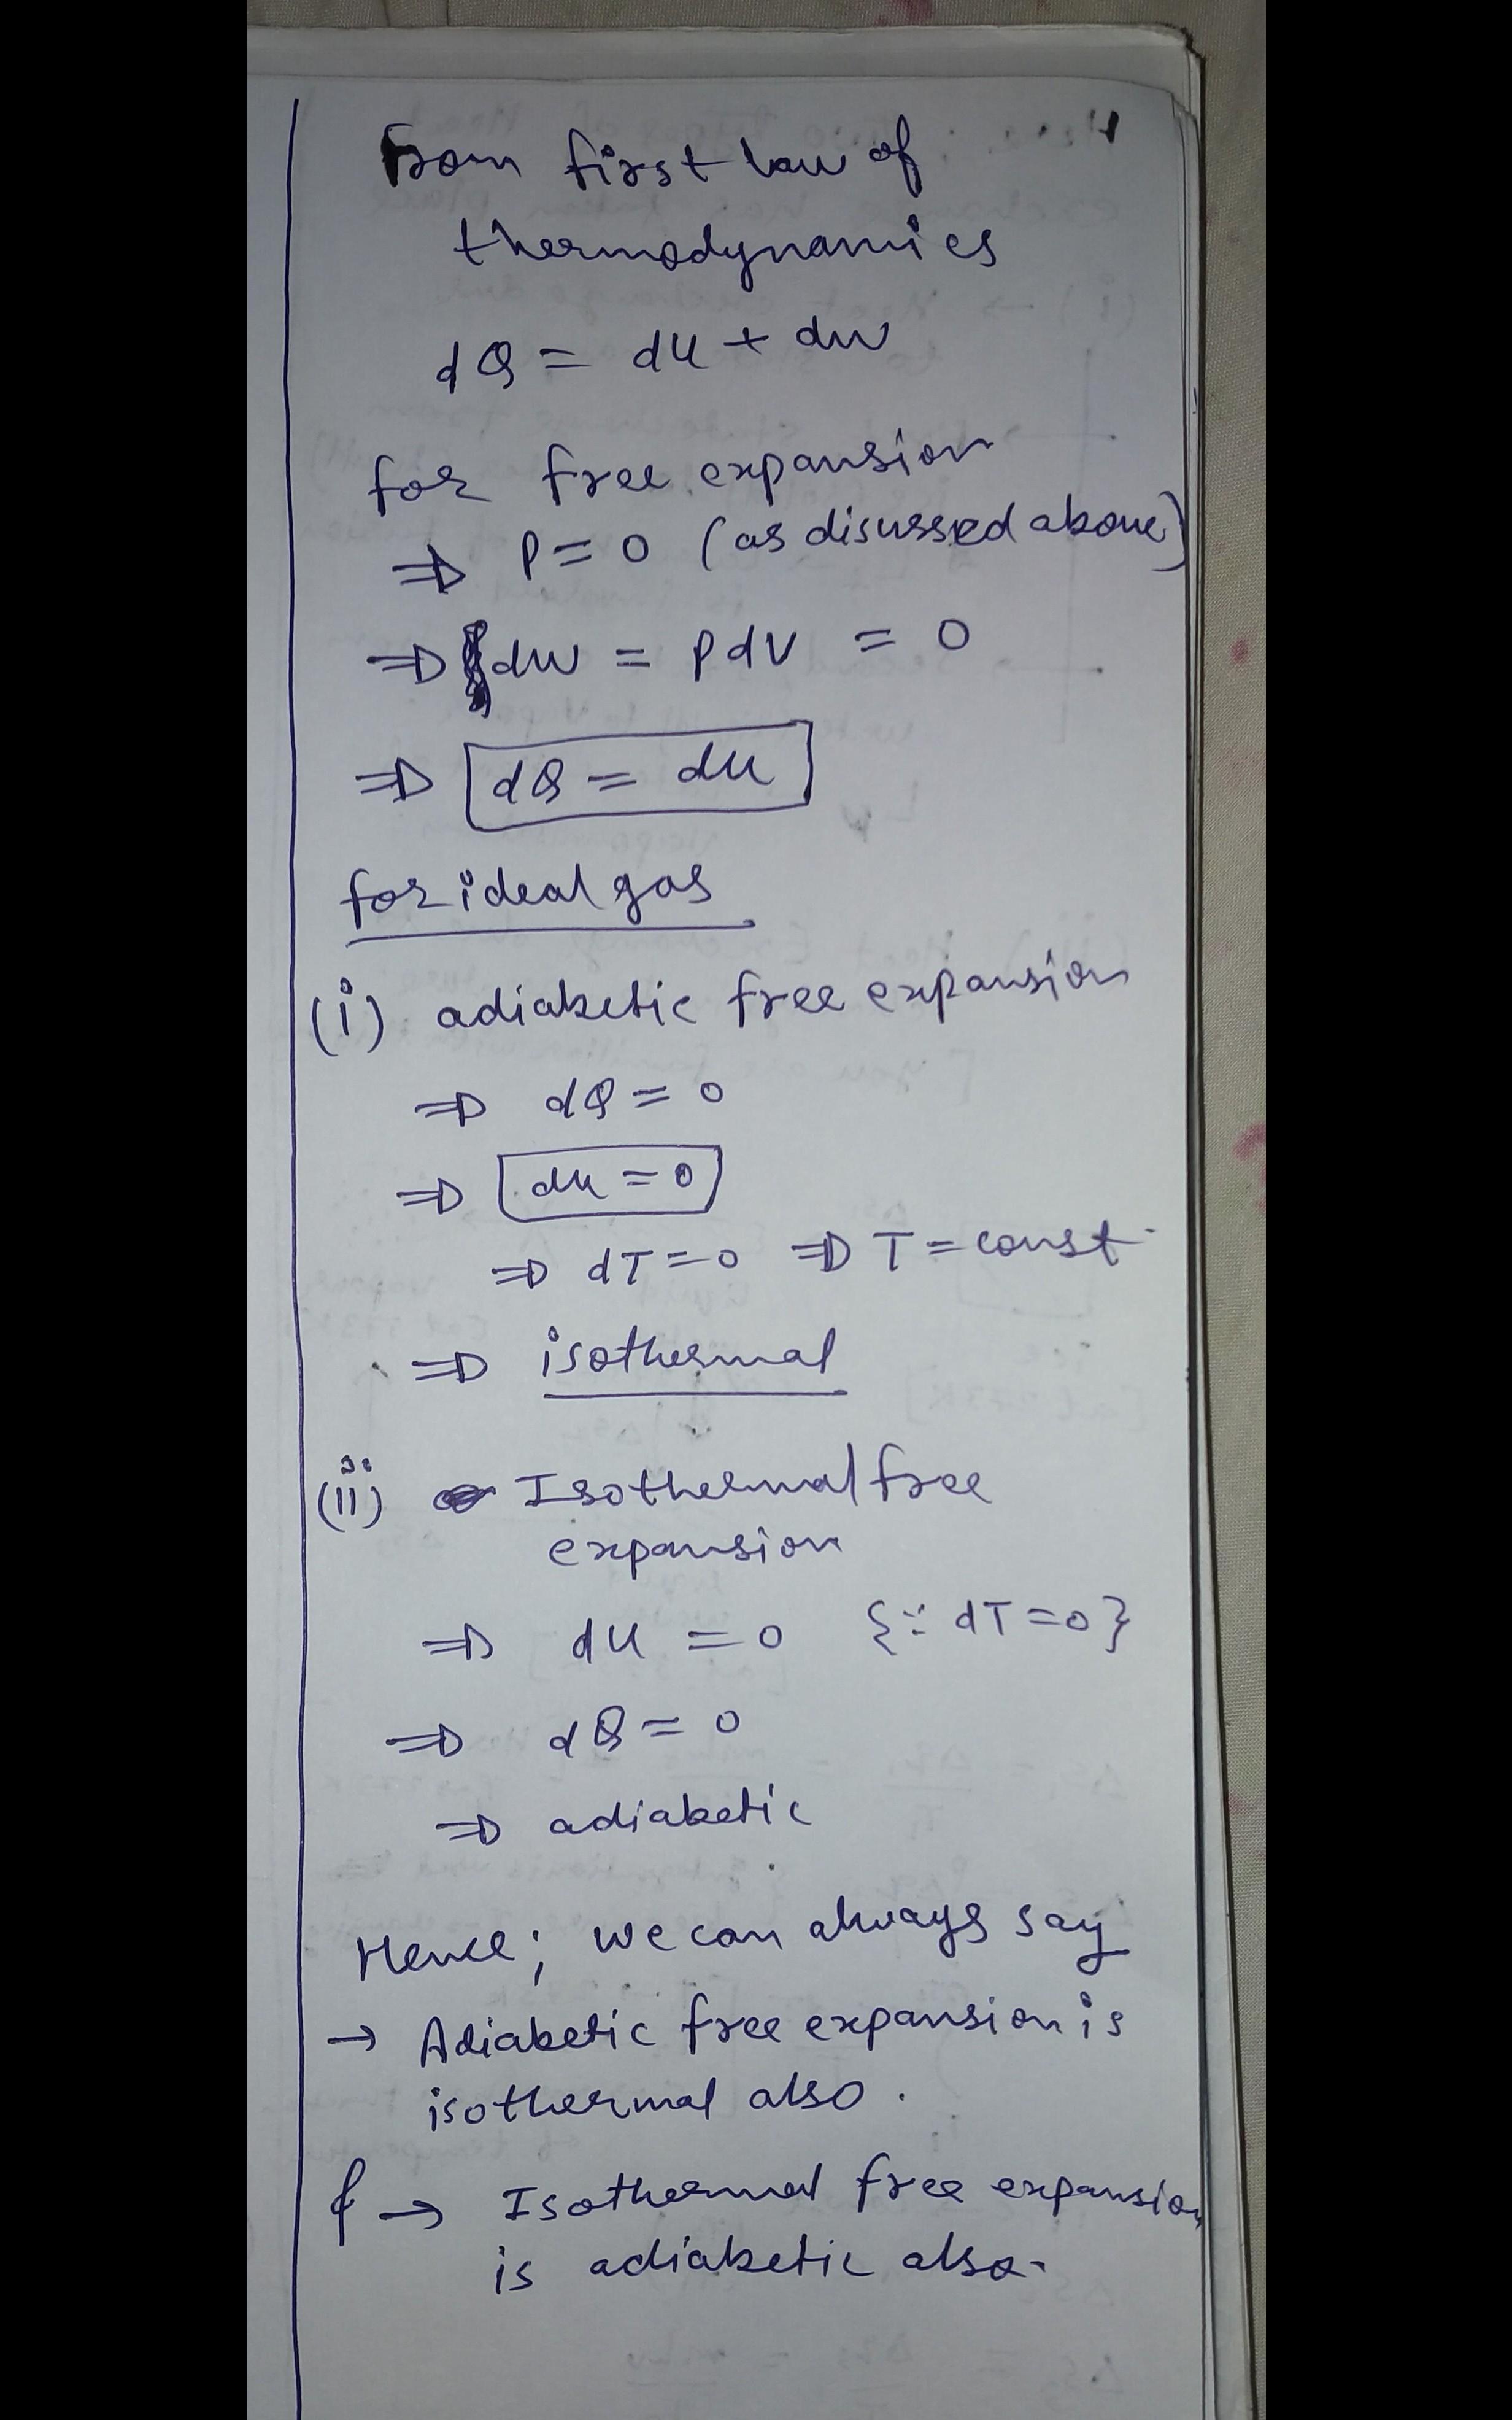 From first law of
thermodynamics
dQ = du + dw
for free expansion
⇒ P = 0 (as disussed above)
⇒ dw = PdV = 0
⇒ dQ = du
for ideal gas
(i) adiabetic free expansion
⇒ dQ = 0
⇒ du = 0
⇒ dT = 0 ⇒ T = const.
⇒ isothermal
(ii) Isothermal free
expansion
⇒ du = 0 {∵ dT = 0}
⇒ dQ = 0
⇒ adiabetic
Hence; we can always say
→ Adiabetic free expansion is
isothermal also.
& → Isothermal free expansion
is adiabetic also.